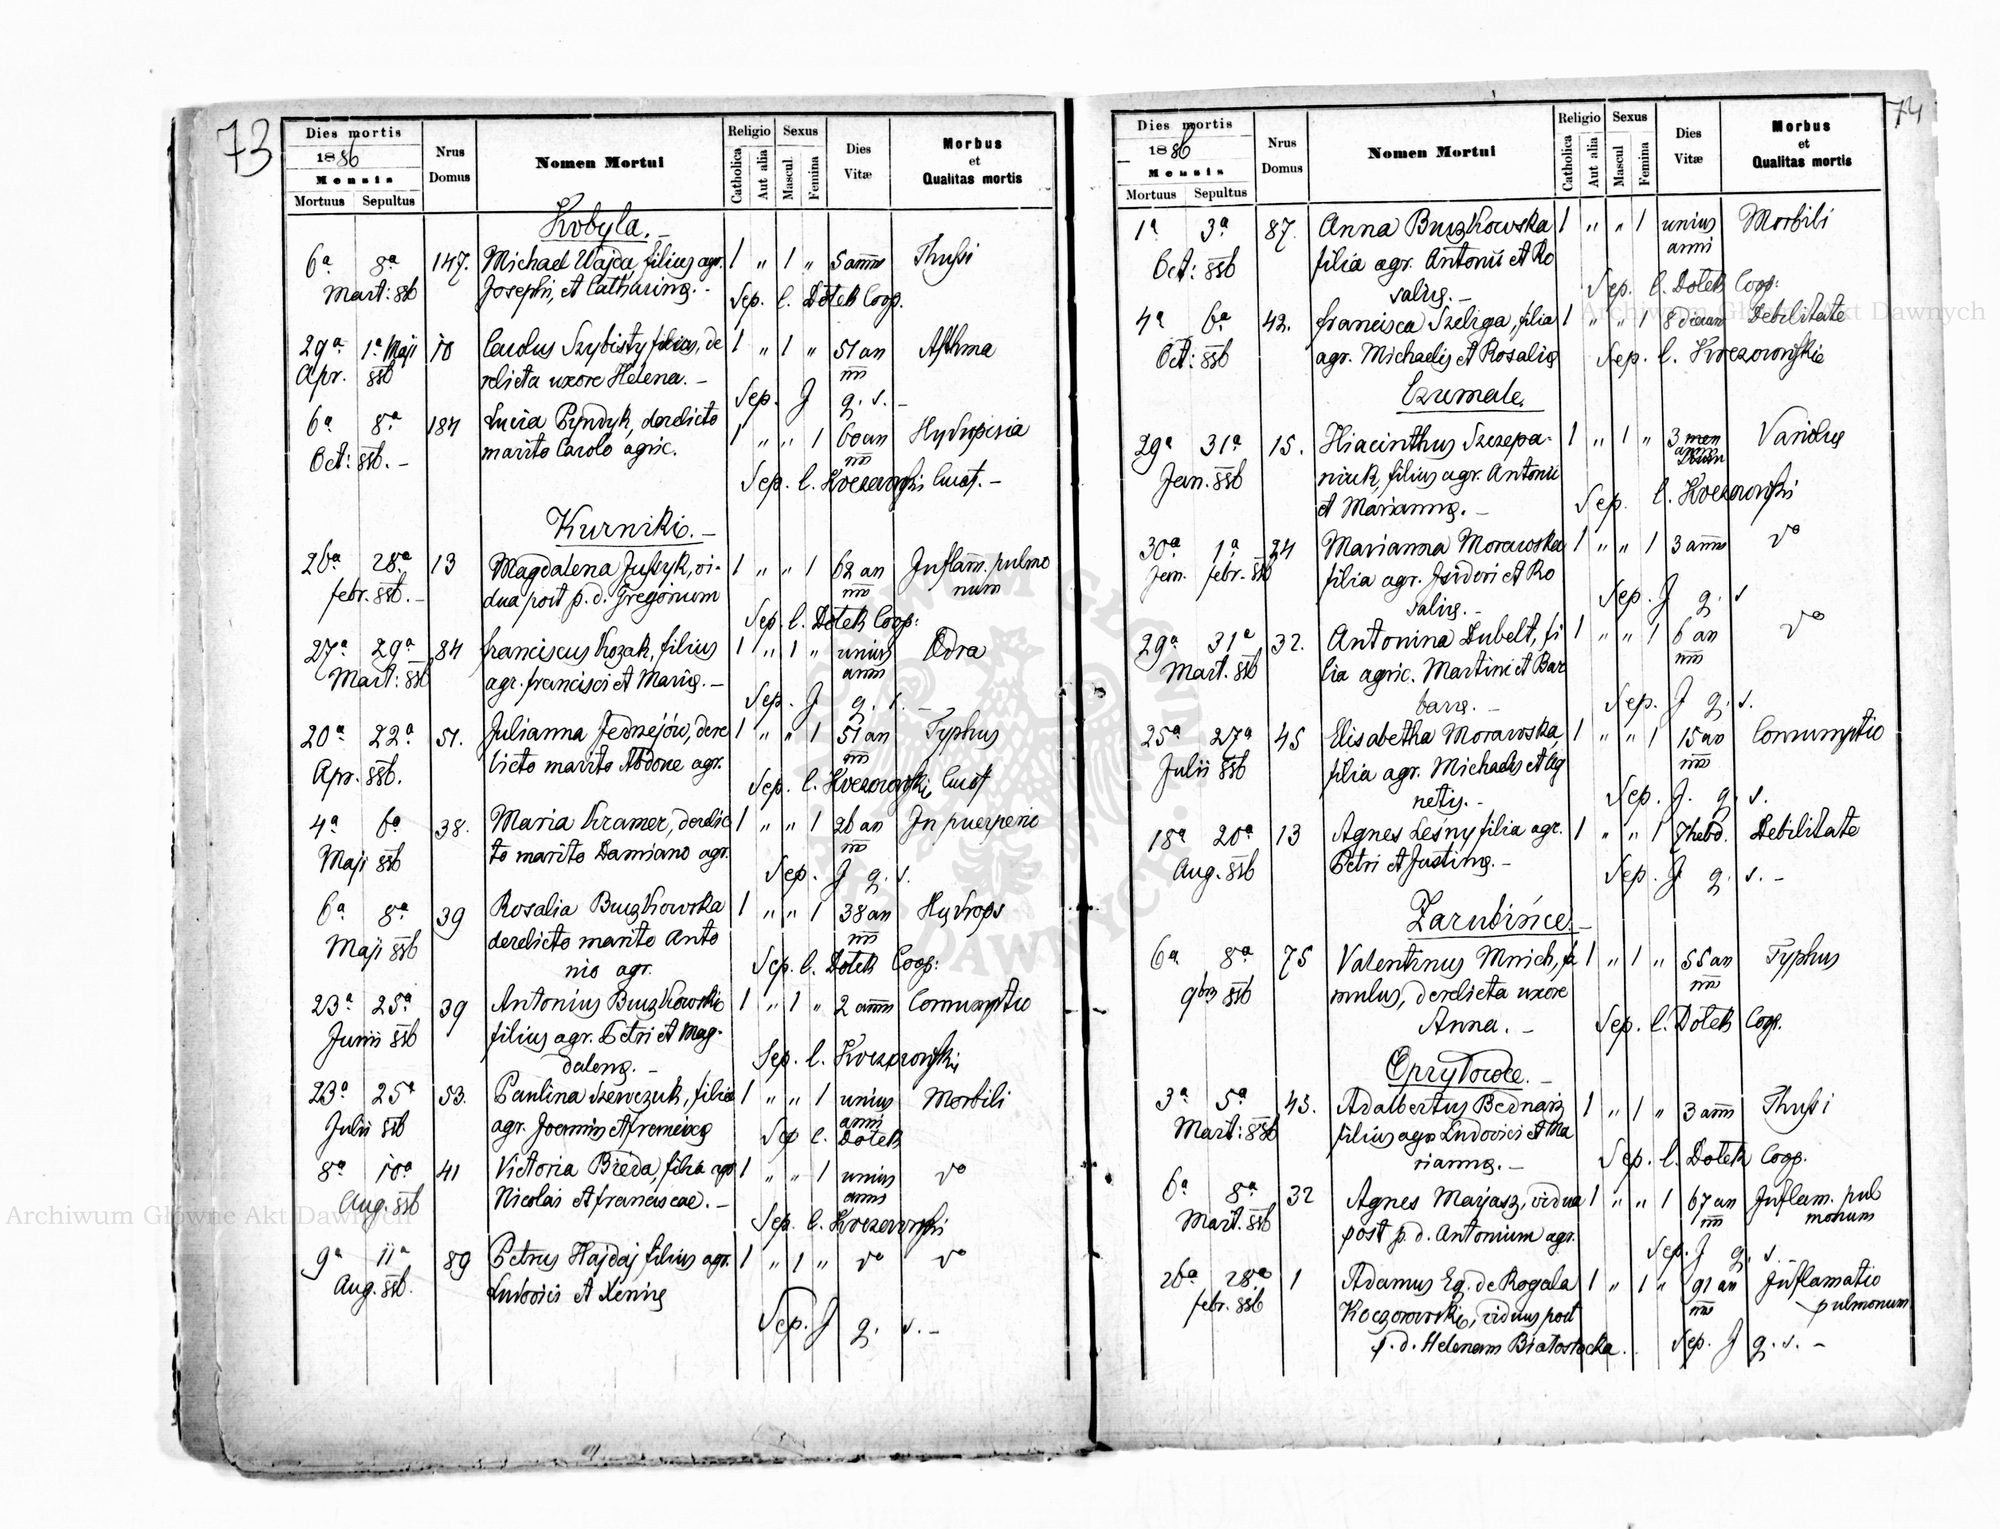 73
Dies mortis
1886
Mensis
Mortuus Sepultus
Nrus Domus
Nomen Mortui
Religio
Catholica
Aut alia
Sexus
Mascul
Femina
Dies Vitæ
Morbus et Qualitas mortis
Kobyla. -
6ª 8ª 147. Michael Wajda, filius agr. 1 " 1 " 5 annis Thussi
Mart: 86 Josephi, et Catharinę. - Sep. C. Dołek Coop.
29ª 1ª Maji 10 Carolus Szybisty filius, de 1 " 1 " 51 an Asthma
Apr. 886 relicta uxore Helena. - nis
Sep. J q. s. -
6ª 8ª 184 Lucia Pyndyk, derelicto 1 " " 1 60 an Hydropisia
Oct: 886. - marito Carolo agric. nis
Sep. C. Koczorowski Curat. -
Kurniki. -
26ª 28ª 13 Magdalena Jussyk, vi- 1 " " 1 62 an Inflam. pulmo
febr. 886. - dua post p. d. Gregorium nis num
Sep. C. Dołek Coop:
27ª 29ª 84 Franciscus Kozak, filius 1 " 1 " unius Odra
Mart: 886 agr. Francisci et Marię. - anni
Sep. J q. s. -
20ª 22ª 51. Julianna Jedrzejów, dere 1 " " 1 51 an Typhus
Apr. 886. licto marito Abdone agr. nis
Sep. C. Koczorowski Curat
4ª 6ª 38. Maria Kramer, derelic 1 " " 1 26 an In puerperio
Maji 886 to marito Damiano agr. nis
Sep. J q. s.
6ª 8ª 39 Rosalia Buczkowska 1 " " 1 38 an Hydrops
Maji 886 derelicto marito Anto nis
nio agr. Sep. C. Dołek Coop:
23ª 25ª 39 Antonius Buczkowski 1 " 1 " 2 annis Consumptio
Junii 886 filius agr. Petri et Mag-
dalenę. - Sep. C. Koczorowski
23ª 25ª 53. Paulina Szewczuk, filia 1 " " 1 unius Morbili
Julii 886 agr. Joannis et Franciscę anni
Sep C. Dołek
8ª 10ª 41 Victoria Breda, filia agr 1 " " 1 unius dº
Aug. 886 Nicolai et Franciscae. - anni
Sep. C. Koczorowski
9ª 11ª 89 Petrus Hajdaj filius agr. 1 " 1 " dº dº
Aug. 886. Ludovici et Xenię
Sep. J q. s. -
74
Dies mortis
1886
Mensis
Mortuus Sepultus
Nrus Domus
Nomen Mortui
Religio
Catholica
Aut alia
Sexus
Mascul
Femina
Dies Vitæ
Morbus et Qualitas mortis
1ª 3ª 87. Anna Buczkowska 1 " " 1 unius Morbili
Oct: 886 filia agr. Antonii et Ro anni
salię. - Sep. C. Dołek Coop:
4ª 6ª 42. Francisca Szeliga, filia 1 " " 1 8 dierum Debilitate
Oct: 886 agr. Michaelis et Rosalię Sep. C. Koczorowski
Czumale.
29ª 31ª 15. Hiacinthus Szczepa- 1 " 1 " 3 men Variolę
Jan. 886 niuk, filius agr. Antonii
et Mariannę. - Sep. C. Koczorowski
30ª 1ª 24 Marianna Morawska 1 " " 1 3 annis dº
Jan. febr. 886 filia agr. Isidori et Ro
salię. - Sep. J q. s
29ª 31ª 32. Antonina Dubelt, fi 1 " " 1 6 an dº
Mart. 886 lia agric. Martini et Bar nis
barę. - Sep. J q. s.
25ª 27ª 45 Elisabetha Morawska, 1 " " 1 15 an Consumptio
Julii 886 filia agr. Michaelis et Ag nis
netis. - Sep. J. q. s.
18ª 20ª 13 Agnes Leśny filia agr. 1 " " 1 7 hebd. Debilitate
Aug. 886 Petri et Justinę. - Sep. J q. s. -
Zarubińce. -
6ª 8ª 75 Valentinus Mnich, fa 1 " 1 " 55 an Typhus
9bris 886 mulus, derelicta uxore nis
Anna. - Sep. C. Dołek Coop.
Opryłowce. -
3ª 5ª 43. Adalbertus Bednarz 1 " 1 " 3 annis Thussi
Mart: 886 filius agr Ludovici et Ma
riannę. - Sep. C. Dołek Coop.
6ª 8ª 32 Agnes Maryasz, vidua 1 " " 1 67 an Inflam. pul
Mart. 886 post p. d. Antonium agr. nis monum
Sep. J q. s. -
26ª 28ª 1 Adamus Eq. de Rogala 1 " 1 " 91 an Inflamatio
febr. 886 Koczorowski, viduus post nis pulmonum
p. d. Helenam Białostocka. Sep. J q. s. -
Archiwum Główne Akt Dawnych
Archiwum Główne Akt Dawnych
ARCHIWUM GŁÓWNE AKT DAWNYCH